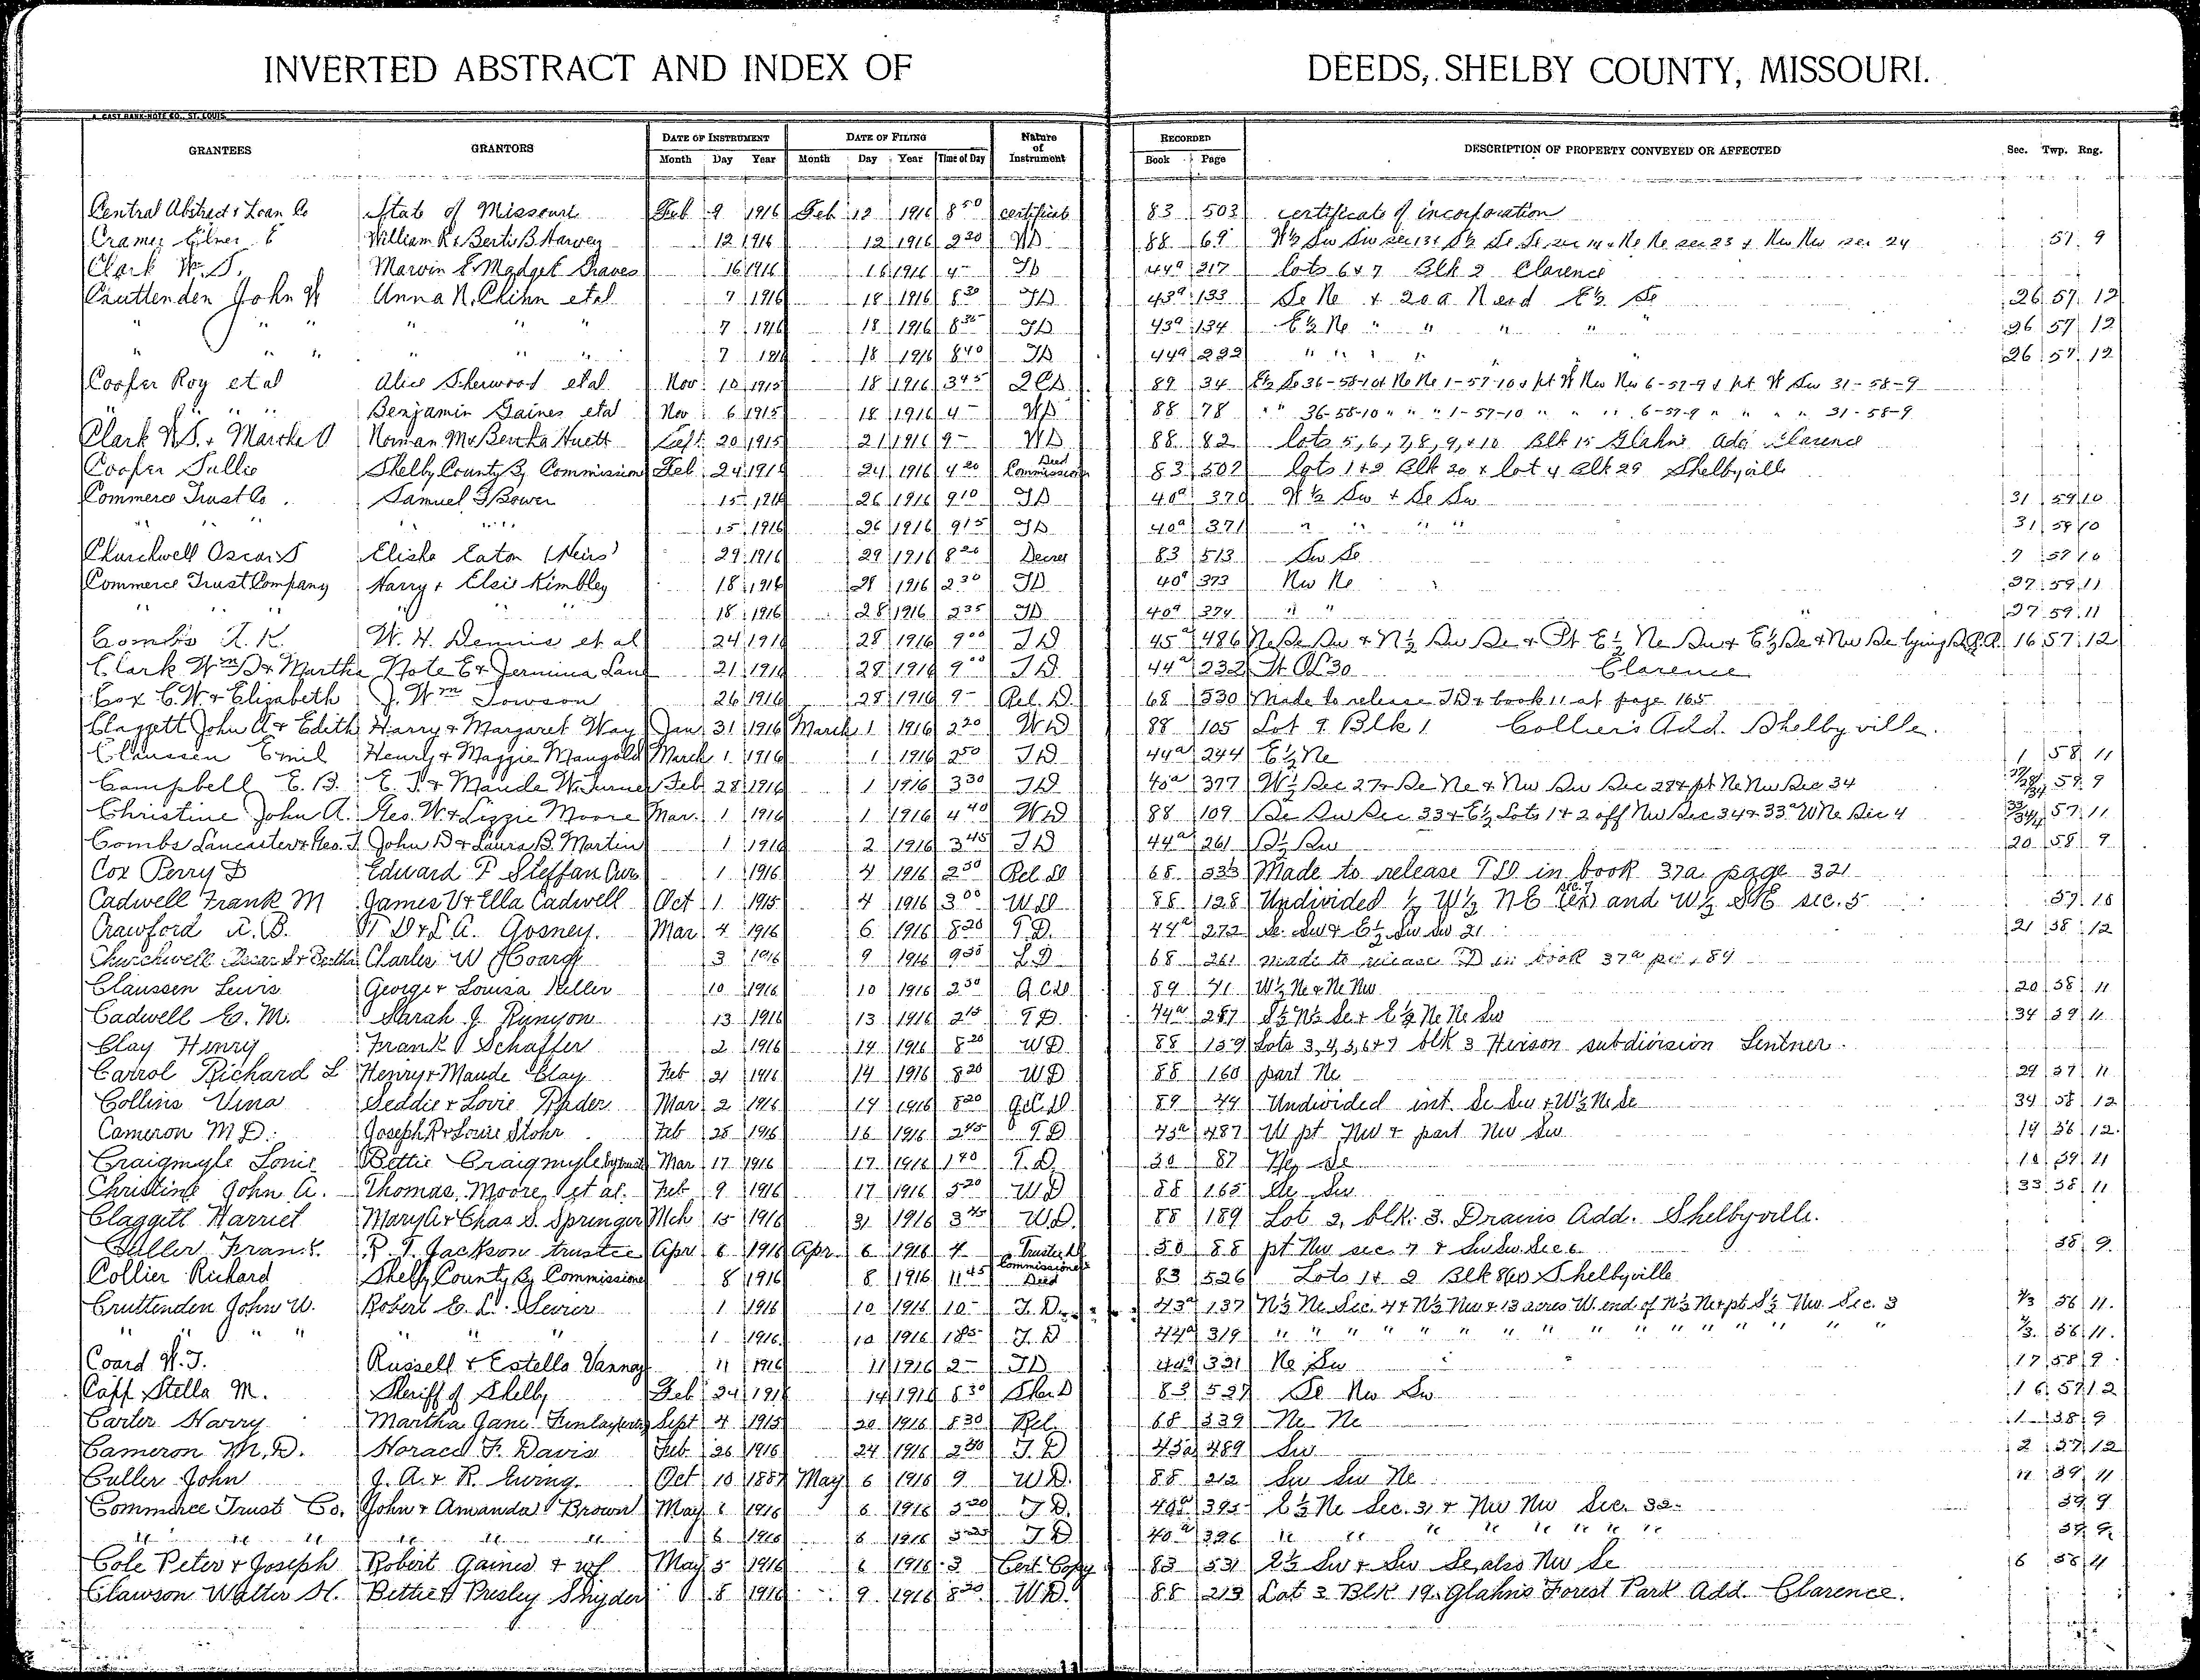 INVERTED ABSTRACT AND INDEX OF DEEDS, SHELBY COUNTY, MISSOURI.
GRANTEES GRANTORS DATE OF INSTRUMENT DATE OF FILING Nature of Instrument RECORDED DESCRIPTION OF PROPERTY CONVEYED OR AFFECTED Sec. Twp. Rng.
Month Day Year Month Day Year Time of Day Book Page
Central Abstract & Loan Co State of Missouri Feb 9 1916 Feb 12 1916 8 50 certificate 83 503 certificate of incorporation
Cramer Elmer E William R & Berti B. Harvey 12 1916 12 1916 2 30 WD 88 69 57 9
Clark W. S. Marvin & Madget Graves 16 1916 16 1916 4 - TD 44a 217 lots 6 & 7 Blk 2 Clarence
Cruttenden John W Anna N. Chinn etal 7 1916 18 1916 8 30 TD 43a 133 Se Ne & 20a N end E½ Se 26 57 12
" " " " " " 7 1916 18 1916 8 35 TD 43a 134 E½ Ne " " " " 26 57 12
" " " " " " 7 1916 18 1916 8 40 TD 44a 222 " " " " 26 57 12
Cooper Roy et al Alice Sherwood etal Nov 10 1915 18 1916 3 45 QCD 89 34 E½ Se 36-58-10 & Ne Ne 1-57-10 & pt W Nw Nw 6-57-9 & pt W Sw 31-58-9
" " " " Benjamin Gaines etal Nov 6 1915 18 1916 4 - WD 88 78 " " 36-58-10 " " " 1-57-10 " " " 6-57-9 " " " " 31-58-9
Clark W.S. & Martha Norman M & Bertha Huett Sept 20 1915 21 1916 9 - WD 88 82 lots 5, 6, 7, 8, 9, & 10 Blk 15 Glahns Add Clarence
Cooper Sallie Shelby County By Commissioner Feb 24 1916 24 1916 4 20 Commissioner Deed 83 507 lots 1 & 2 Blk 20 & lot 4 Blk 29 Shelbyville
Commerce Trust Co. Samuel Bower 15 1916 26 1916 9 10 TD 40a 370 W½ Sw & Se Sw 31 59 10
" " " " " 15 1916 26 1916 9 15 TD 40a 371 " " " " 31 59 10
Churchwell Oscar S Elisha Eaton (Heirs) 29 1916 29 1916 8 20 Decree 83 513 Sw Se 57 10
Commerce Trust Company Harry & Elsie Kimbley 18 1916 28 1916 2 30 TD 40a 373 Nw Ne 27 59 11
" " " " 18 1916 28 1916 2 35 TD 40a 374 " " " 27 59 11
Combs R. K. W. H. Dennis et al 24 1916 28 1916 9 00 TD 45a 486 Ne Se Sw & N½ Sw Se & Pt E½ Ne Sw & E½ Se & Nw Se lying S R.R. 16 57 12
Clark Wm S & Martha Note E & Jermina Lane 21 1916 28 1916 9 00 TD 44a 232 Clarence
Cox C.W. & Elizabeth J. Wm Towson 26 1916 28 1916 9 - Rel. D. 68 330 Made to release TD & book 11 at page 165
Claggett John A & Edith Harry & Margaret Way Jan 31 1916 March 1 1916 2 20 WD 88 105 Lot 9 Blk 1 Colliers Add. Shelbyville.
Claussen Emil Henry & Maggie Mangold March 1 1916 1 1916 2 50 TD 44a 244 E½ Ne 1 58 11
Campbell E. B. E. T. & Maude W. Turner Feb 28 1916 1 1916 3 30 TD 45a 377 W½ Sec 27 & Se Ne & Nw Sw Sec 28 & pt Ne Nw Sec 34 27/28/34 59 9
Christine John A. Geo. W. & Lizzie Moore Mar. 1 1916 1 1916 4 40 WD 88 109 Se Sw Sec 33 & E½ Lots 1 & 2 off Nw Sec 34 & 33a W Ne Sec 4 57 11
Combs Lancaster & Geo. T. John D & Laura B. Martin 1 1916 2 1916 3 45 TD 44a 261 S½ Sw 20 58 9
Cox Perry D Edward P Steffan Cur 1 1916 4 1916 2 50 Rel. D 68 333 Made to release TD in book 37a page 321
Cadwell Frank M James V & Ella Cadwell Oct 1 1915 4 1916 3 00 WD 88 128 Undivided ½ W½ NE sec. 7 and W½ SE sec. 5 57 10
Crawford R. B. Gosney. Mar 4 1916 6 1916 8 20 T.D. 44a 272 Se Sw & E½ Sw Sw 21 21 58 12
Churchwell Oscar S & Bertha Charles W Hoard 3 1916 9 1916 9 30 68 261 made to release TD in book 37a pg 189
Claussen Lewis George & Louisa Keller 10 1916 10 1916 2 30 Q.C.D. 89 41 W½ Ne & Ne Nw 20 58 11
Cadwell E. M. Sarah J. Runyon 13 1916 13 1916 2 15 T.D. 44a 287 S½ N½ Se & E½ Ne Ne Sw 34 59 11
Clay Henry Frank Schaffer 2 1916 14 1916 8 20 WD 88 159 Lots 3, 4, 5, 6 & 7 blk 3 Hirson subdivision Lentner.
Carrol Richard L Henry & Maude Clay Feb 21 1916 14 1916 8 20 WD 88 160 part Ne 29 57 11
Collins Vina Seddie & Lovie Rader Mar 2 1916 14 1916 8 20 Q.C.D 89 44 Undivided int. Se Sw & W½ Ne Se 34 58 12
Cameron M D. Joseph R & Louie Stohr Feb 28 1916 16 1916 2 45 T.D 45a 487 W pt Nw & part Nw Sw 19 56 12.
Craigmyle Lonie Bettie Craigmyle by trustee Mar 17 1916 17 1916 1 40 T.D. 30 87 Ne Se 10 59 11
Christine John A. Thomas Moore, et al. Feb 9 1916 17 1916 5 20 WD 88 165 Se Sw 33 58 11
Claggett Harriet Mary A & Chas S. Springer Mch 15 1916 31 1916 3 45 W.D. 88 189 Lot 2, blk. 3. Drains Add. Shelbyville.
Culler Frank. R. T. Jackson trustee Apr 6 1916 Apr. 6 1916 4 Trustee D 50 88 pt Nw sec. 7 & Sw Sw Sec 6 58 9
Collier Richard Shelby County By Commissioner 8 1916 8 1916 11 45 Commissioners Deed 83 526 Lots 1 & 2 Blk Shelbyville
Cruttenden John W. Robert E. L. Sevier 1 1916 10 1916 10 - T.D. 43a 137 N½ Ne Sec. 4 & N½ Nw & 13 acres W. end of N½ Ne & pt S½ Nw Sec. 3 4/3 56 11.
" " " " " " 1 1916 10 1916 T.D 44a 319 " " " " " " " " " " " " 4/3 56 11.
Coard W. T. Russell & Estella Vannoy 11 1916 11 1916 2 - TD 44a 321 Ne Sw 17 58 9
Capp Stella M. Sheriff of Shelby Feb 24 1916 14 1916 8 30 Sher D 83 527 Se Nw Sw 16 57 12
Carter Harry Martha Jane Sept 4 1915 20 1916 8 30 Rel. 68 339 Ne Ne 1 58 9
Cameron M. D. Horace F. Davis Feb 26 1916 24 1916 2 30 T.D 45a 489 Sw 2 57 12
Culler John J. A. & R. Ewing. Oct 10 1887 May 6 1916 9 WD. 88 212 Sw Sw Ne 11 59 11
Commerce Trust Co. John & Amanda Brown May 6 1916 6 1916 5 20 T.D. 40a 395 E½ Ne Sec. 31 & Nw Nw Sec. 32. 59 9
" " " " " " 6 1916 6 1916 5 25 T.D 40a 396 " " " " " " " " 59 9
Cole Peter & Joseph Robert Gaines & wf May 5 1916 6 1916 3 Cert. Copy 83 531 E½ Sw & Sw Se, also Nw Se 6 58 11
Clawson Walter H. Bettie & Presley Snyder 8 1916 9 1916 8 30 WD. 88 213 Lot 3 Blk 19. Glahns Forest Park Add. Clarence.